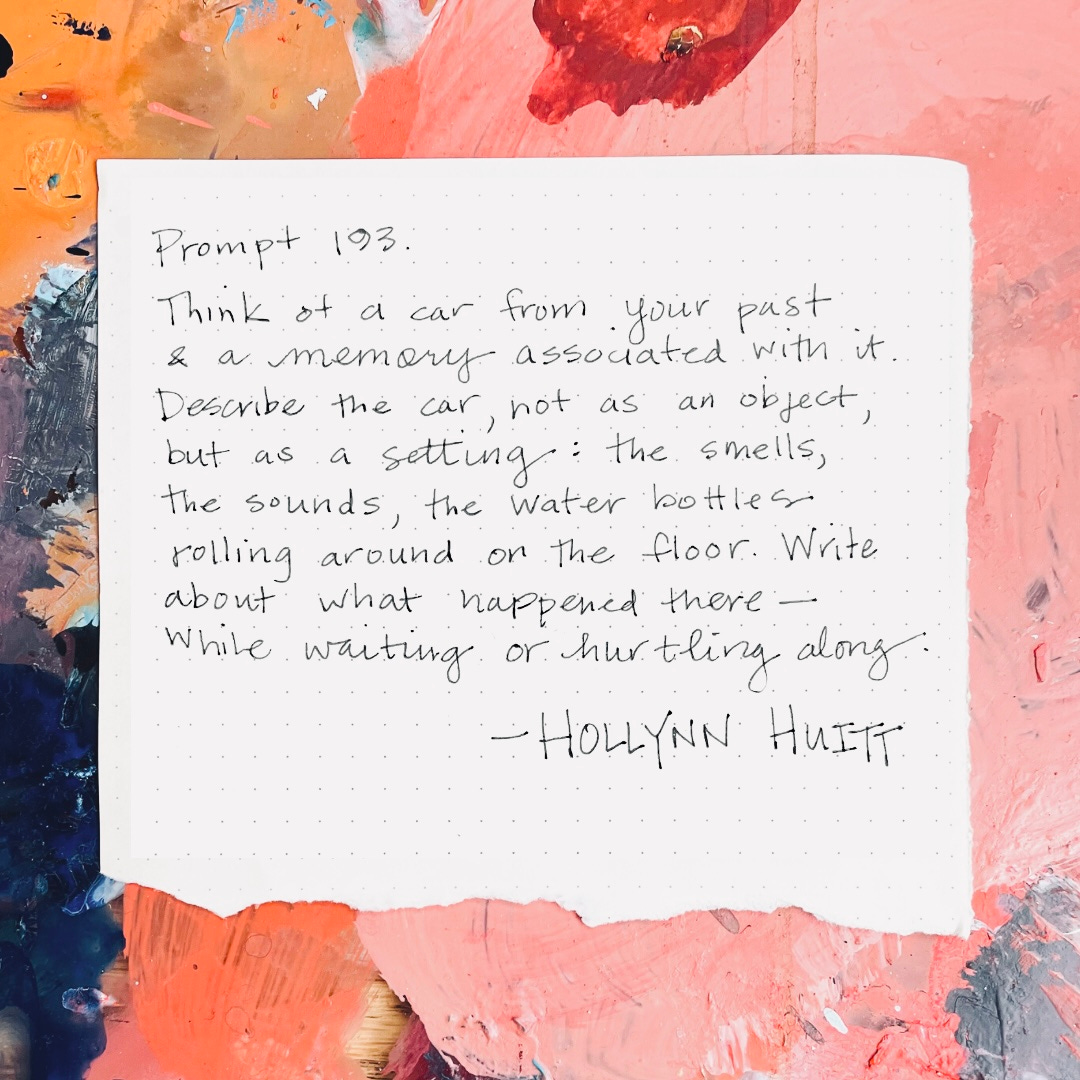 Prompt 193.
Think of a car from your past
& a memory associated with it.
Describe the car, not as an object,
but as a setting: the smells,
the sounds, the water bottles
rolling around on the floor. Write
about what happened there—
while waiting or hurtling along.
—HOLLYNN HUITT